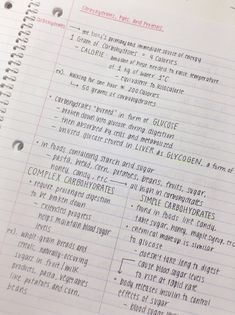 Carbohydrates, Fats, And Proteins
→ the body's primary and immediate source of energy
1 Gram of Carbohydrates = 4 Calories
- CALORIE: amount of heat needed to raise temperature
of 1 kg of water 1°C
- equivalent to kilocalorie
ex). Walking for one hour = 200 calories
↳ 50 grams of carbohydrates
• Carbohydrates "burned" in form of GLUCOSE
- broken down into glucose during digestion
- then absorbed by cells and metabolized
- unused glucose stored in LIVER as GLYCOGEN, a form of
• in foods containing starch and sugar
- pasta, bread, corn, potatoes, beans, fruits, sugar,
honey, candy, etc → all high in carbohydrates
COMPLEX CARBOHYDRATES
• require prolonged digestion
to be broken down
- extended process
helps maintain blood sugar
levels
ex). whole-grain breads and
cereals, naturally-occuring
sugars in fruit/milk
products, pasta, vegetables
like potatoes and corn,
beans
SIMPLE CARBOHYDRATES
• found in foods like candy,
cake, sugar, honey, maple syrup, etc.
• chemical makeup is similar
to glucose
- doesn't take long to digest
↳ cause blood sugar levels
to rise at rapid rate
• body releases insulin to control
effects of sugar
- blood sugar